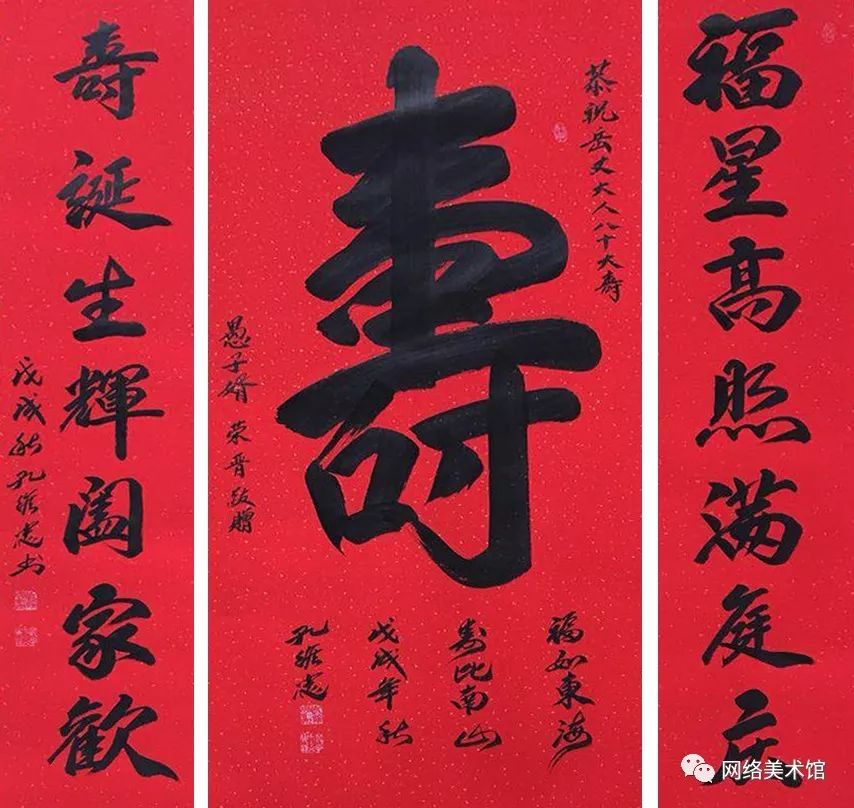 福星高照满庭庆
壽誕生輝闔家歡
戊戌秋孔維志书
恭祝岳丈大人八十大寿
壽
愚子婿 荣晋敬贈
福如東海
寿比南山
戊戌年秋
孔維志
网络美术馆